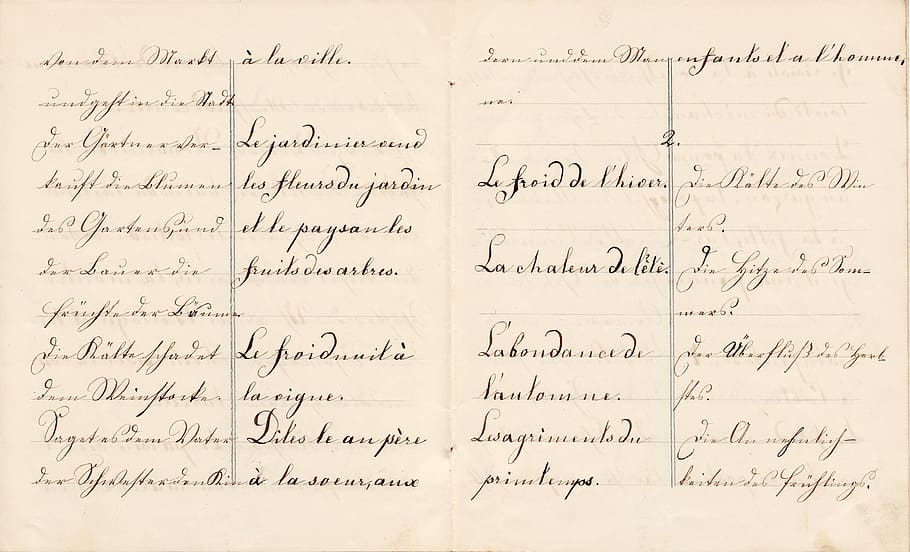 von dem Markt
und geht in die Stadt
Der Gärtner ver-
kauft die Blumen
des Gartens, und
der Bauer die
früchte der Bäume.
Die Kälte schadet
dem Weinstocke.
Saget es dem Vater
der Schwester den Kin
à la ville.
Le jardinier vend
les fleurs du jardin
et le paysan les
fruits des arbres.
Le froid nuit à
la vigne.
Dites le au père
à la soeur, aux
dern und dem Man
ne.
enfants et a l'homme.
2.
Le froid de l'hiver.
La chaleur de l'été.
L'abondance de
l'automne.
Les agriments du
printemps.
Die Kälte des Win
ters.
Die Hitze des Som-
mers.
Der Überfluß des Herb-
stes.
Die Annehmlich-
keiten des frühlings.